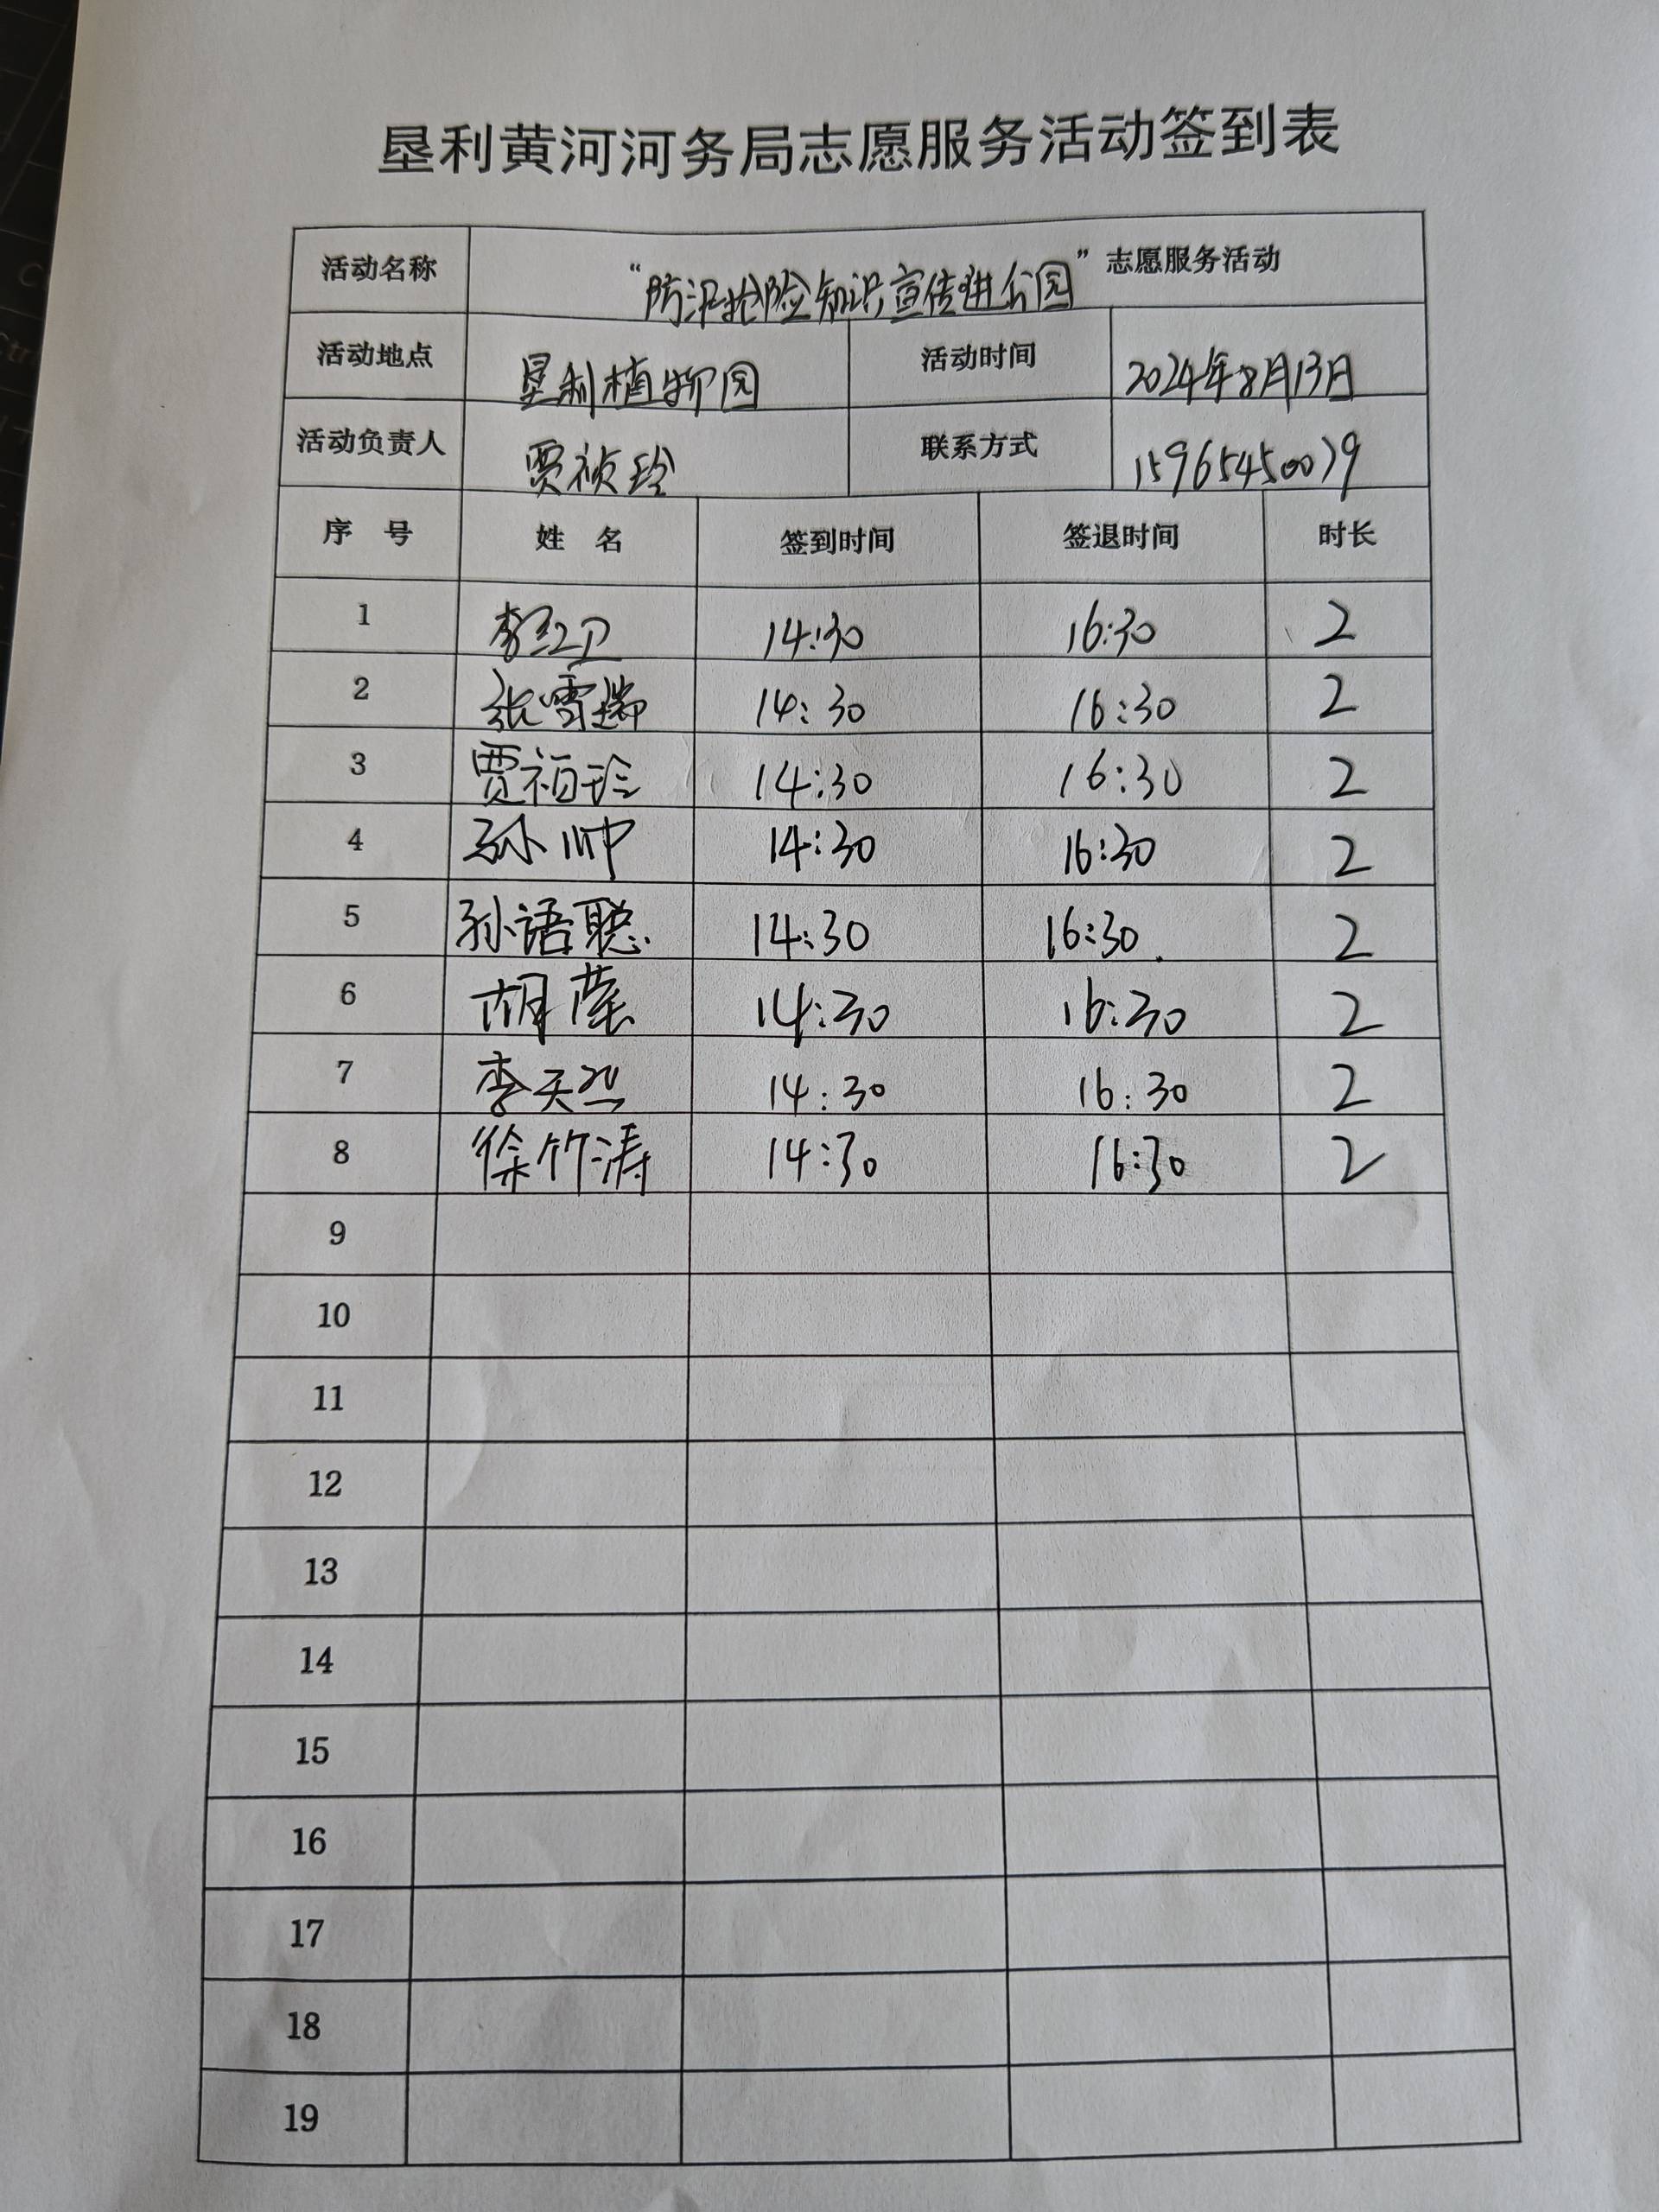 垦利黄河河务局志愿服务活动签到表
活动名称 “防汛抢险知识宣传进公园”志愿服务活动
活动地点 垦利植物园 活动时间 2024年8月13日
活动负责人 贾祯玲 联系方式 15965450079
序 号 姓 名 签到时间 签退时间 时长
1 李红卫 14:30 16:30 2
2 张雪瑞 14:30 16:30 2
3 贾祯玲 14:30 16:30 2
4 孙帅 14:30 16:30 2
5 孙语聪 14:30 16:30 2
6 胡莹 14:30 16:30 2
7 李天然 14:30 16:30 2
8 徐竹涛 14:30 16:30 2
9
10
11
12
13
14
15
16
17
18
19